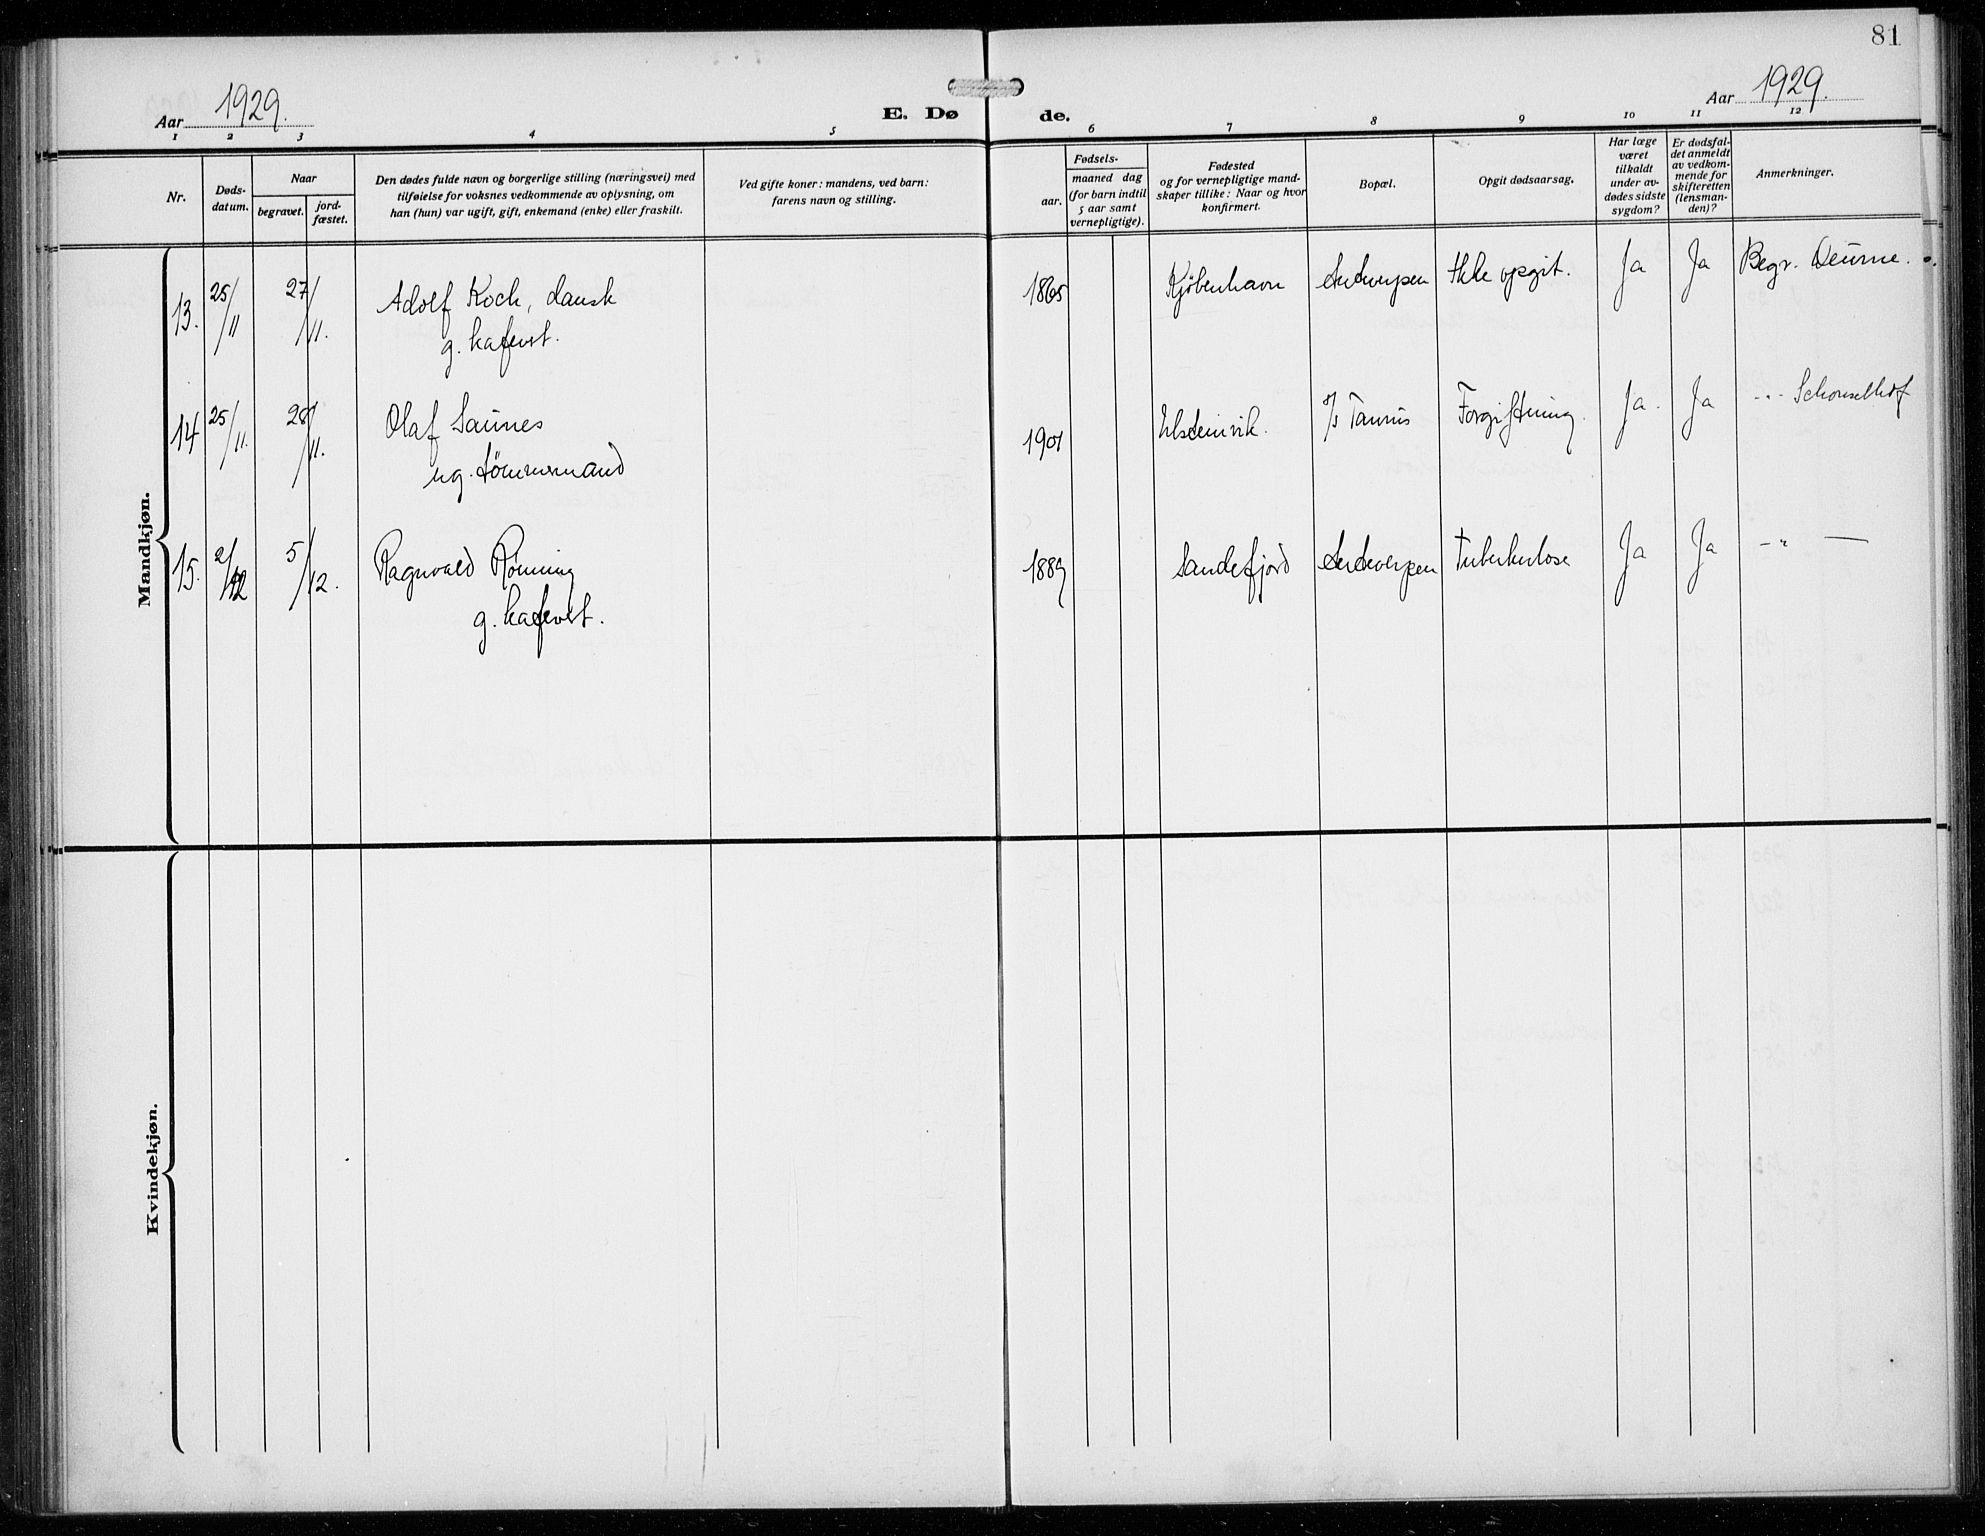 81
Aar 1929.
E. Dø de.
Aar 1929.
1 2 3 4 5 6 7 8 9 10 11 12
Nr.
Døds-
datum.
Naar
begravet.
jord-
fæstet.
Den dødes fulde navn og borgerlige stilling (næringsvei) med
tilføielse for voksnes vedkommende av oplysning, om
han (hun) var ugift, gift, enkemand (enke) eller fraskilt.
Ved gifte koner: mandens, ved barn:
farens navn og stilling.
Fødsels-
aar.
maaned dag
(for barn indtil
5 aar samt
vernepligtige).
Fødested
og for vernepligtige mand-
skaper tillike: Naar og hvor
konfirmert.
Bopæl.
Opgit dødsaarsag.
Har læge
været
tilkaldt
under av-
dødes sidste
sygdom?
Er dødsfal-
det anmeldt
av vedkom-
mende for
skifteretten
(lensman-
den)?
Anmerkninger.
Mandkjøn.
13. 25/11 27/11. Adolf Koch, dansk 1865 Kjöbenhavn Antwerpen Ikke opgit. Ja Ja Begr. Deurne.
g. kafevert.
14 25/11. 28/11. Olaf Saunes 1901 Ulsteinvik. s/s Taurus Forgiftning. Ja. Ja -"- Schonselhof
ug. tömmermand
15. 2/12 5/12. Ragnvald Rønning 1889 Sandefjord Antwerpen Tuberkulose Ja Ja -"- —
g. kafevert.
Kvindekjøn.